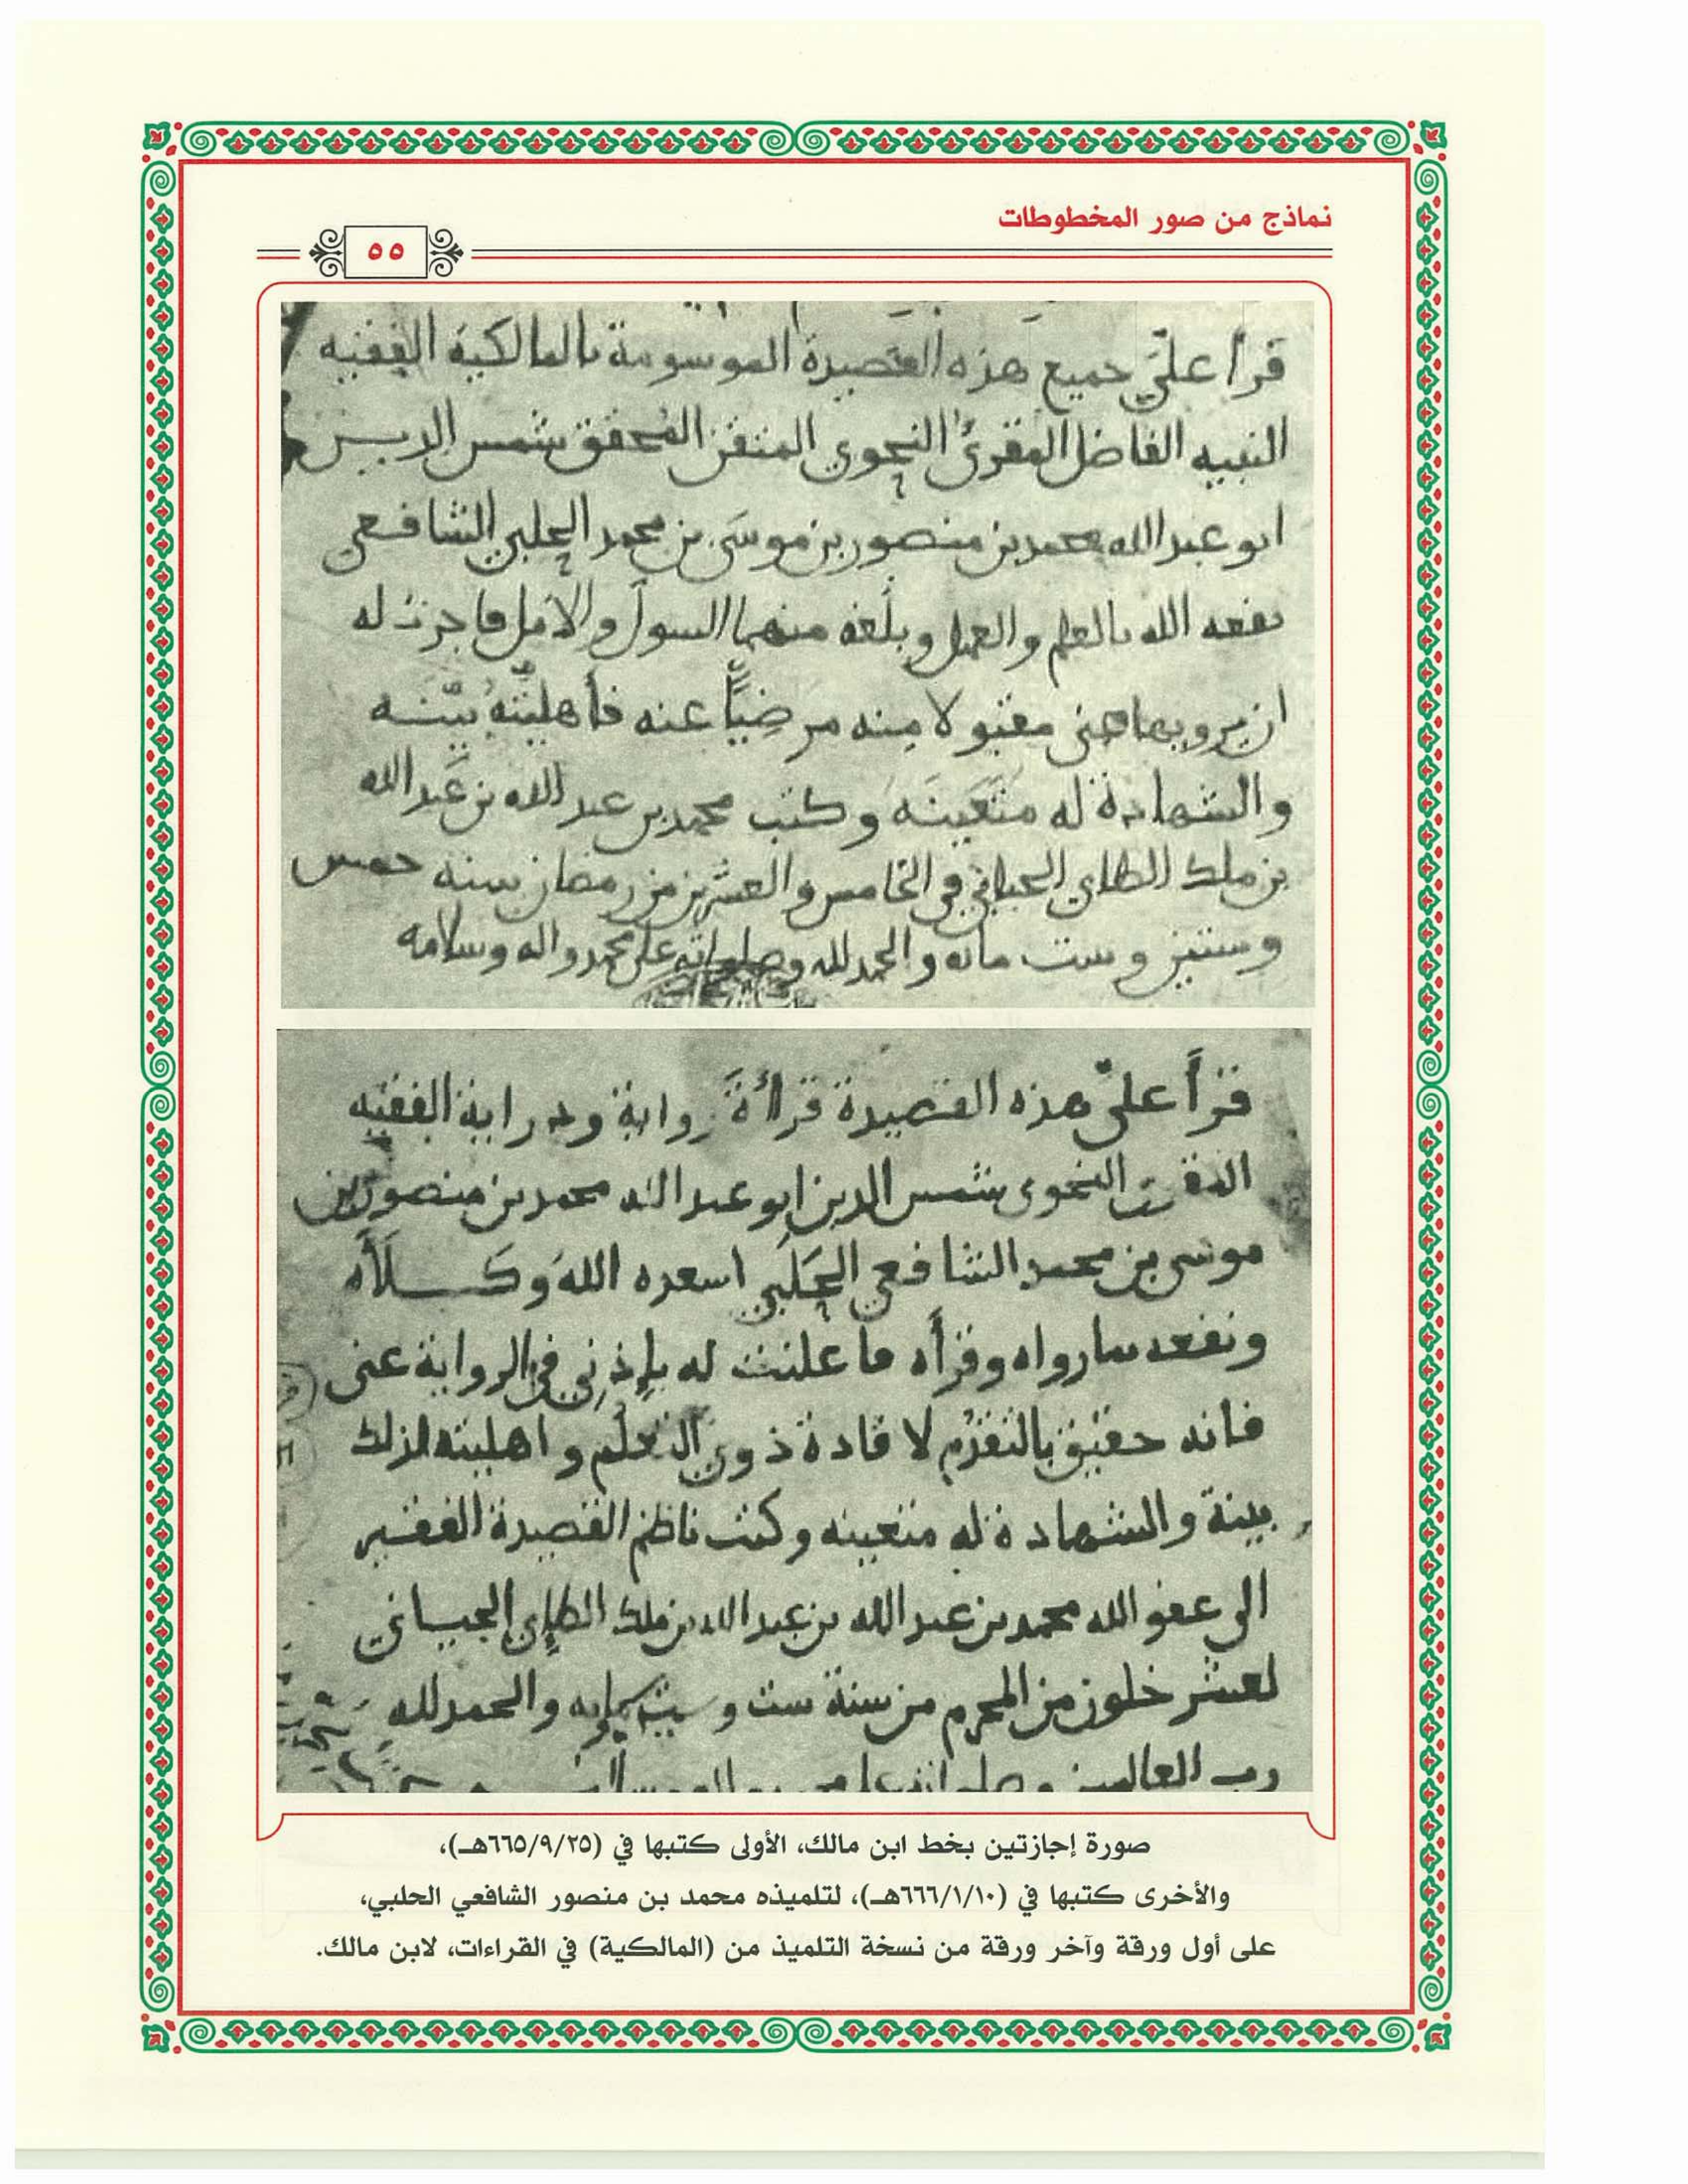 نماذج من صور المخطوطات
٥٥
قرأ عليّ جميع هذه القصيدة الموسومة بالمالكية الفقيه
النبيه الفاضل المقرئ النحوي المتقن المحقق شمس الدين
ابو عبد الله محمد بن منصور بن موسى بن محمد الحلبي الشافعي
نفعه الله بالعلم والعمل وبلغه منهما السول والامل فاجزت له
ان يرويها عني مقبولا منه مرضيًّا عنه فأهليته بيّنه
والشهادة له متعينه وكتب محمد بن عبد الله بن عبد الله
بن ملك الطاي الجياني في الخامس والعشرين من رمضان سنه خمس
وستين وست مائه والحمد لله وصلواته على محمد واله وسلامه
قرأ عليّ هذه القصيدة قراأة رواية ودراية الفقيه
النحوي شمس الدين ابو عبد الله محمد بن منصور بن
موسى بن محمد الشافعي الحلبي اسعده الله وكلأه
ونفعه بما رواه وقرأه فاعلنت له بإذني في الرواية عني
فانه حقيق بالتقدم لافادة ذوي التعلم واهليته لذلك
بينة والشهادة له متعينه وكتب ناظم القصيدة الفقير
الى عفو الله محمد بن عبد الله بن عبد الله بن ملك الطاي الجياني
لعشر خلون من المحرم من سنة ست وستمايه والحمد لله
رب العالمين
صورة إجازتين بخط ابن مالك، الأولى كتبها في (٦٦٥/٩/٢٥هـ)،
والأخرى كتبها في (٦٦٦/١/١٠هـ)، لتلميذه محمد بن منصور الشافعي الحلبي،
على أول ورقة وآخر ورقة من نسخة التلميذ من (المالكية) في القراءات، لابن مالك.